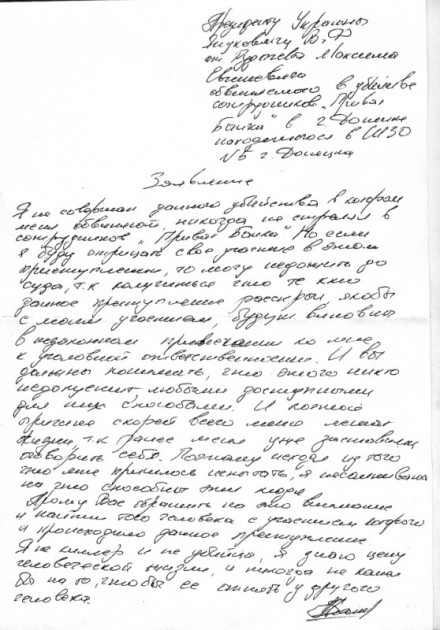 Президенту Украины
Януковичу В.Ф
от Максима
Евгеневича
обвиняемого в убийстве
сотрудников „Приват
Банка" в г. Донецке
находящегося в СИЗО
№5 г. Донецка
Заявление
Я не совершал данного убийства в котором
меня обвиняют, никогда не стрелял в
сотрудников „Приват Банка" Но если
я буду отрицать свое участие в этом
приступлении, то могу недожить до
суда, т.к получиться что те кто
данное приступление раскрыл, якобы
с моим участием, будут виновны
в незаконном привлечении ко мне
к уголовной ответственности. И вы
должны понимать, что этого никто
недопустит любыми доступными
для них способами. И
причине скорей всего меня лишат
жизни т.к ранее меня уже заставили
оговорить себя. Поэтому исходя из того
что мне пришлось испытать, я
на что способны эти люди
Прошу Вас обратить на это внимание
и найти того человека с участием которого
и происходило данное преступление.
Я не киллер и не убийца, я знаю цену
человеческой жизни, и никогда не
бы на то, чтобы ее отнять у другого
человека.